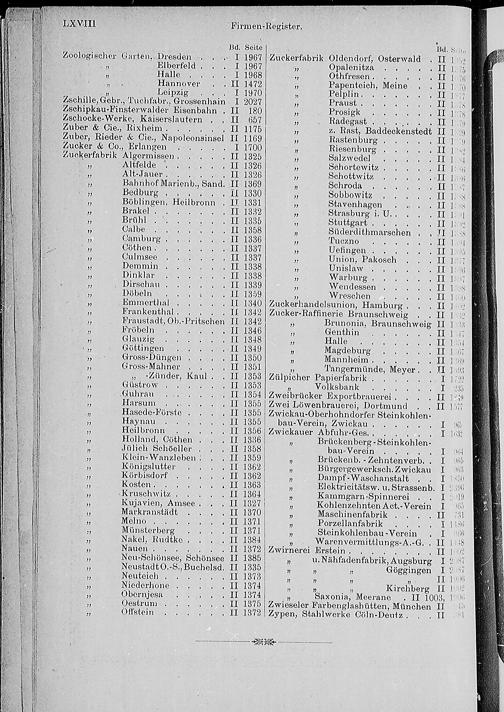 LXVIII
Firmen-Register.
Bd. Seite
Zoologischer Garten, Dresden . . . I 1967
„ Elberfeld . . I 1967
„ Halle . . . I 1968
„ Hannover . . II 1472
„ Leipzig . . . I 1970
Zschille, Gebr., Tuchfabr., Grossenhain I 2027
Zschipkau-Finsterwalder Eisenbahn . II 180
Zschocke-Werke, Kaiserslautern . . II 657
Zuber & Cie., Rixheim . . . . II 1175
Zuber, Rieder & Cie., Napoleonsinsel II 1169
Zucker & Co., Erlangen . . . . I 1700
Zuckerfabrik Algermissen . . . . II 1325
„ Altfelde . . . . . II 1326
„ Alt-Jauer . . . . . II 1326
„ Bahnhof Marienb., Sand. II 1369
„ Bedburg . . . . . II 1330
„ Böblingen, Heilbronn . II 1331
„ Brakel . . . . . II 1332
„ Brühl . . . . . II 1335
„ Calbe . . . . . II 1358
„ Camburg . . . . . II 1336
„ Cöthen . . . . . II 1337
„ Culmsee . . . . . II 1337
„ Demmin . . . . . II 1338
„ Dinklar . . . . . II 1338
„ Dirschau . . . . . II 1339
„ Döbeln . . . . . II 1359
„ Emmerthal . . . . II 1340
„ Frankenthal . . . . II 1342
„ Fraustadt, Ob.-Pritschen II 1342
„ Fröbeln . . . . . II 1346
„ Glauzig . . . . . II 1348
„ Göttingen . . . . II 1349
„ Gross-Düngen . . . II 1350
„ Gross-Mahner . . . II 1351
„ „ -Zünder, Kaul . . II 1353
„ Güstrow . . . . . II 1353
„ Guhrau . . . . . II 1354
„ Harsum . . . . . II 1355
„ Hasede-Förste . . . II 1355
„ Haynau . . . . . II 1355
„ Heilbronn . . . . II 1356
„ Holland, Cöthen . . II 1336
„ Jülich Schöeller . . . II 1358
„ Klein-Wanzleben . . . II 1359
„ Königslutter . . . . II 1362
„ Körbisdorf . . . . II 1362
„ Kosten . . . . . II 1363
„ Kruschwitz . . . . II 1364
„ Kujavien, Amsee . . . II 1327
„ Markranstädt . . . . II 1370
„ Melno . . . . . II 1371
„ Münsterberg . . . . II 1371
„ Nakel, Rudtke . . . II 1384
„ Nauen . . . . . II 1372
„ Neu-Schönsee, Schönsee II 1385
„ Neustadt O.-S., Buchelsd. II 1335
„ Neuteich . . . . . II 1373
„ Niederhone . . . . II 1374
„ Obernjesa . . . . II 1374
„ Oestrum . . . . . II 1375
„ Offstein . . . . . II 1372
Bd.
Zuckerfabrik Oldendorf, Osterwald . II
„ Opalenitza . . . . II
„ Othfresen . . . . II
„ Papenteich, Meine . . II
„ Pelplin . . . . . II
„ Praust . . . . . II
„ Prosigk . . . . . II
„ Radegast . . . . . II
„ z. Rast, Baddeckenstedt II
„ Rastenburg . . . . II
„ Riesenburg . . . . II
„ Salzwedel . . . . II
„ Schortewitz . . . . II
„ Schottwitz . . . . II
„ Schroda . . . . . II
„ Sobbowitz . . . . II
„ Stavenhagen . . . . II
„ Strasburg i. U. . . . II
„ Stuttgart . . . . . II
„ Süderdithmarschen . . II
„ Tuczno . . . . . II
„ Uefingen . . . . . II
„ Union, Pakosch . . . II
„ Unislaw . . . . . II
„ Warburg . . . . . II
„ Wendessen . . . . II
„ Wreschen . . . . II
Zuckerhandelsunion, Hamburg . . II
Zucker-Raffinerie Braunschweig . II
„ Brunonia, Braunschweig II
„ Genthin . . . . . II
„ Halle . . . . . II
„ Magdeburg . . . . II
„ Mannheim . . . . II
„ Tangermünde, Meyer . II
Zülpicher Papierfabrik . . . . I
„ Volksbank . . . . I
Zweibrücker Exportbrauerei . . . II
Zwei Löwenbrauerei, Dortmund . II
Zwickau-Oberhohndorfer Steinkohlen-
bau-Verein, Zwickau . . . . I
Zwickauer Abfuhr-Ges. . . . . I
„ Brückenberg-Steinkohlen-
bau-Verein . . . . I
„ Brückenb. Zehntenverb. . I
„ Bürgergewerksch. Zwickau I
„ Dampf-Waschanstalt . . I
„ Elektricitätsw. u. Strassenb. I
„ Kammgarn-Spinnerei . . I
„ Kohlenzehnten Act.-Verein I
„ Maschinenfabrik . . . II
„ Porzellanfabrik . . . I
„ Steinkohlenbau-Verein . I
„ Warenvermittlungs-A.-G. . II
Zwirnerei Erstein . . . . . II
„ u. Nähfadenfabrik, Augsburg I
„ „ „ Göggingen I
„ „ „ „ II
„ „ „ Kirchberg II
„ Saxonia, Meerane . II 1003,
Zwieseler Farbenglashütten, München II
Zypen, Stahlwerke Cöln-Deutz . . . II